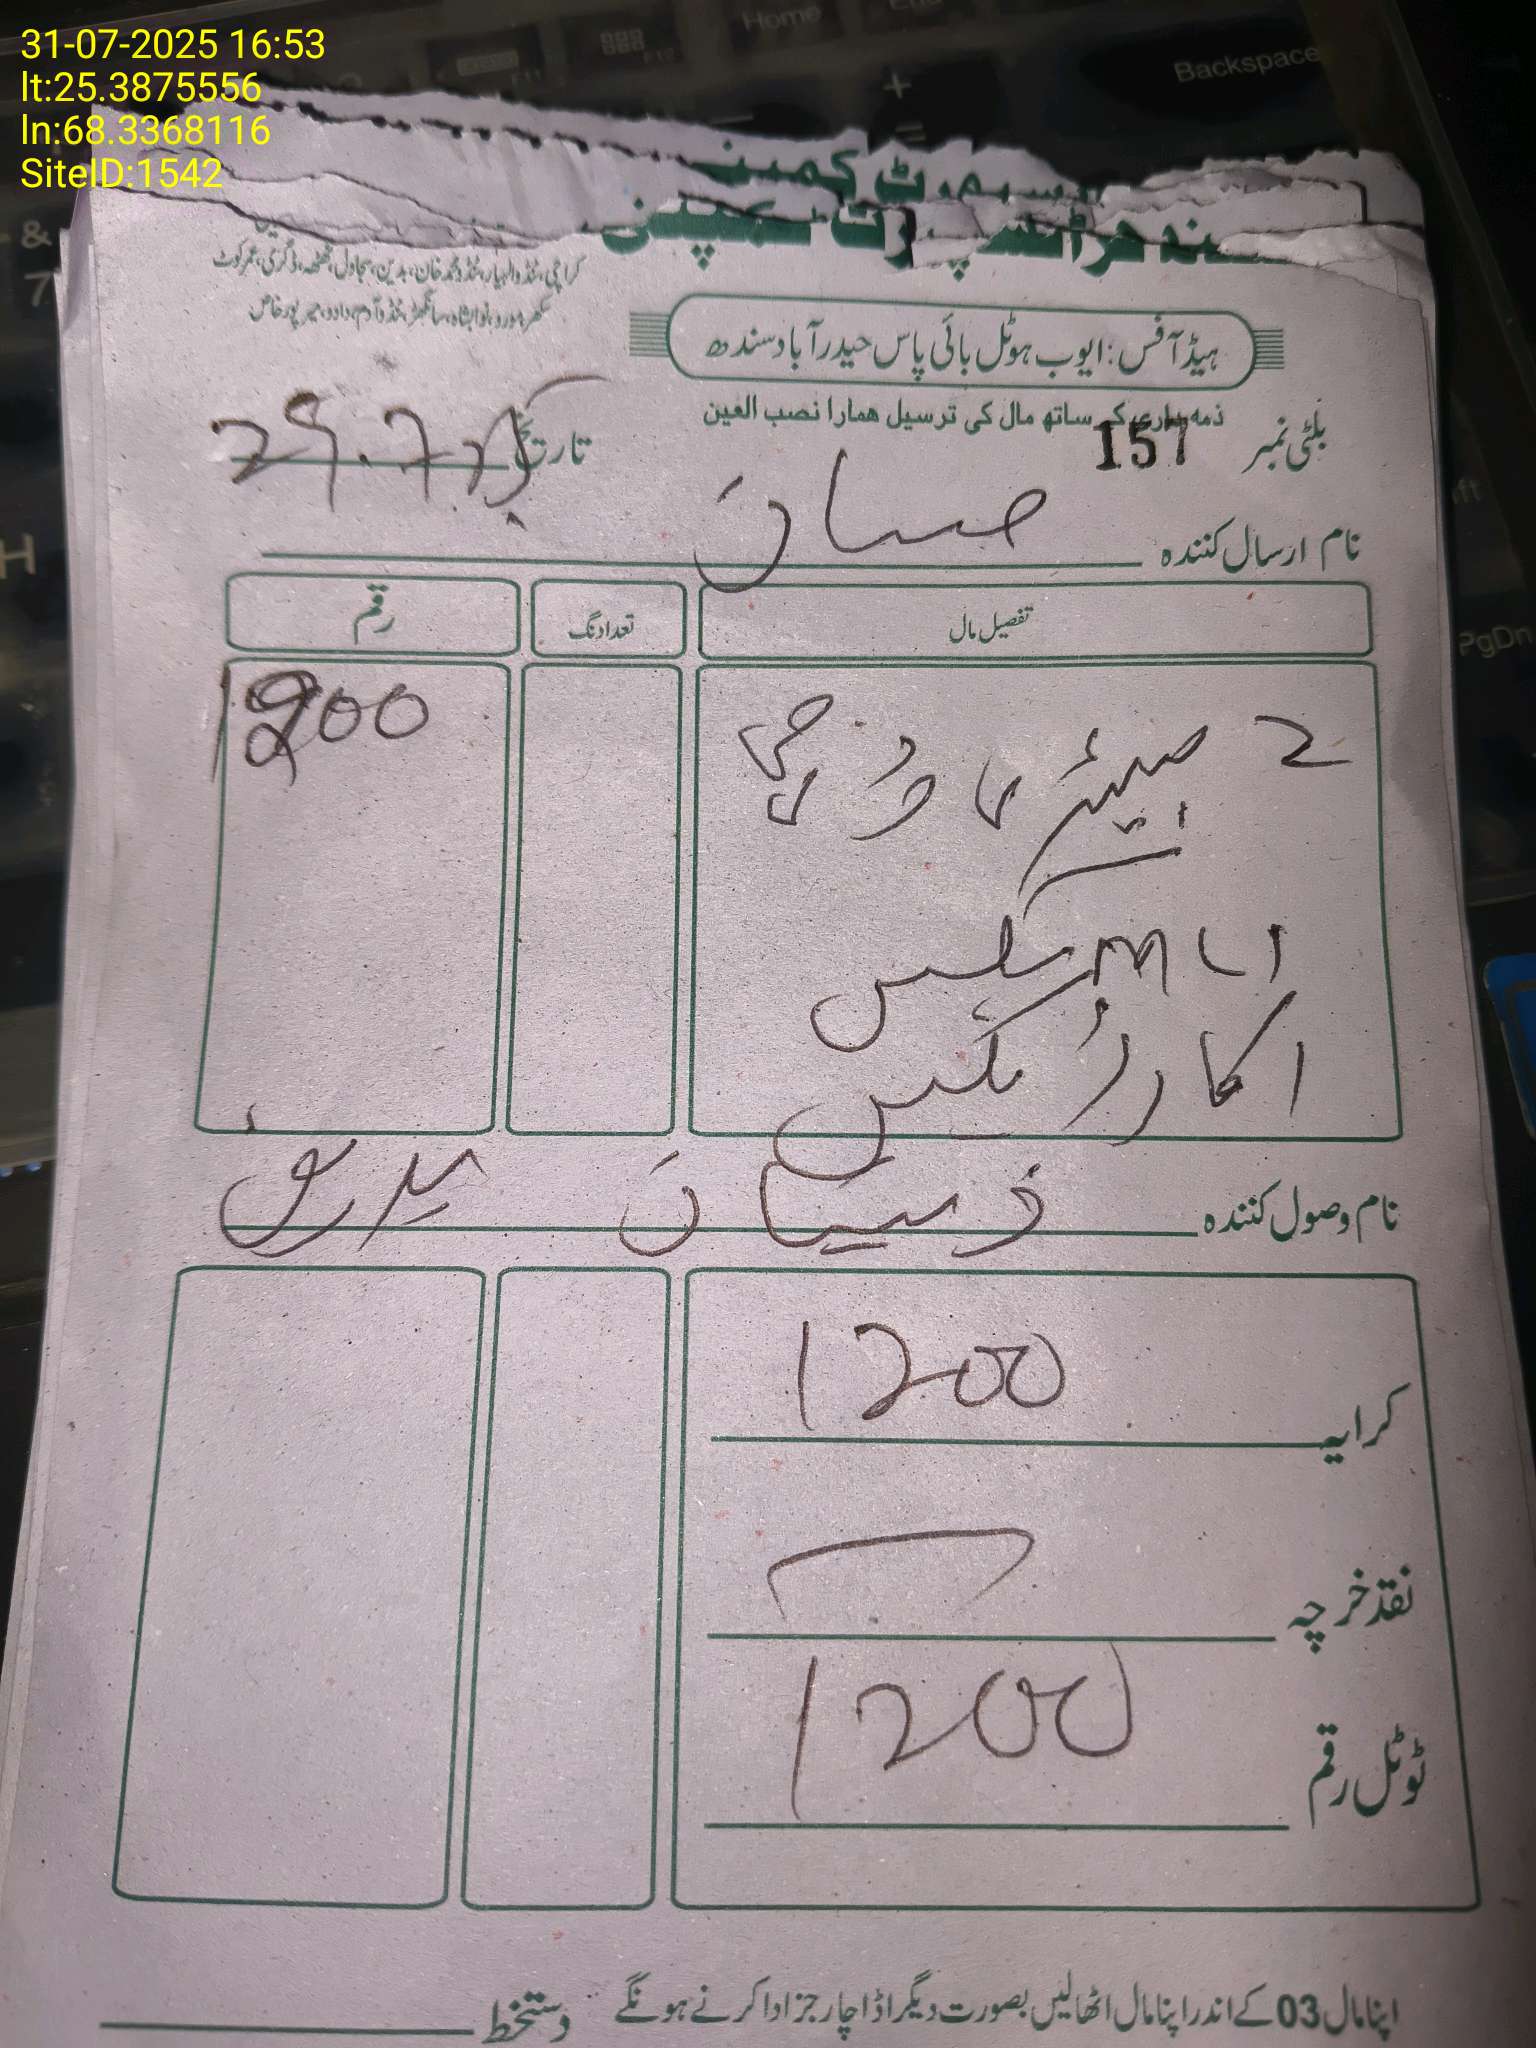 31-07-2025 16:53
lt:25.3875556
ln:68.3368116
SiteID:1542
Home
Backspace
کمپنی
سندھ ٹرانسپورٹ کمپنی
کراچی، ٹنڈوالہیار، ٹنڈومحمدخان، بدین، سجاول، ٹھٹھہ، ڈگری، عمرکوٹ
سکھر، مورو، نوابشاہ، سانگھڑ، ٹنڈوآدم، دادو، میرپورخاص
ہیڈ آفس: ایوب ہوٹل بائی پاس حیدرآباد سندھ
ذمہ داری کے ساتھ مال کی ترسیل ہمارا نصب العین
بلٹی نمبر 157
تاریخ 29.7.25
نام ارسال کنندہ حسان
تفصیل مال تعداد نگ رقم
2 1200
بکس
ا کارڈ بکس
نام وصول کنندہ ذیشان
کرایہ 1200
نقد خرچہ
ٹوٹل رقم 1200
اپنا مال 03 کے اندر اپنا مال اٹھالیں بصورت دیگر اڈا چارجز ادا کرنے ہونگے
دستخط
PgDn